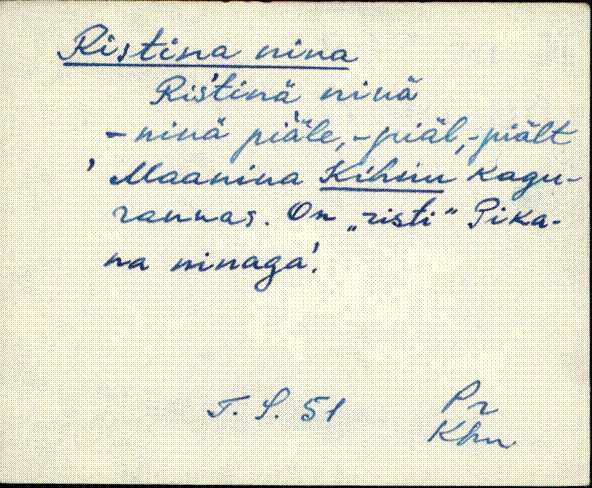 Ristina nina
Ris'tinä ninä
- ninä piäle, - piäl, - piält
' Maanina Kihnu kagu-
rannas. On „risti“ Pika-
na ninaga'.
T. S. 51
Pr
Khn